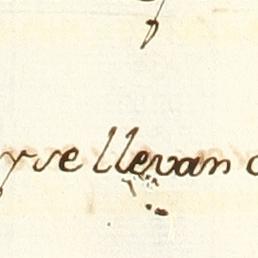 y se llevan